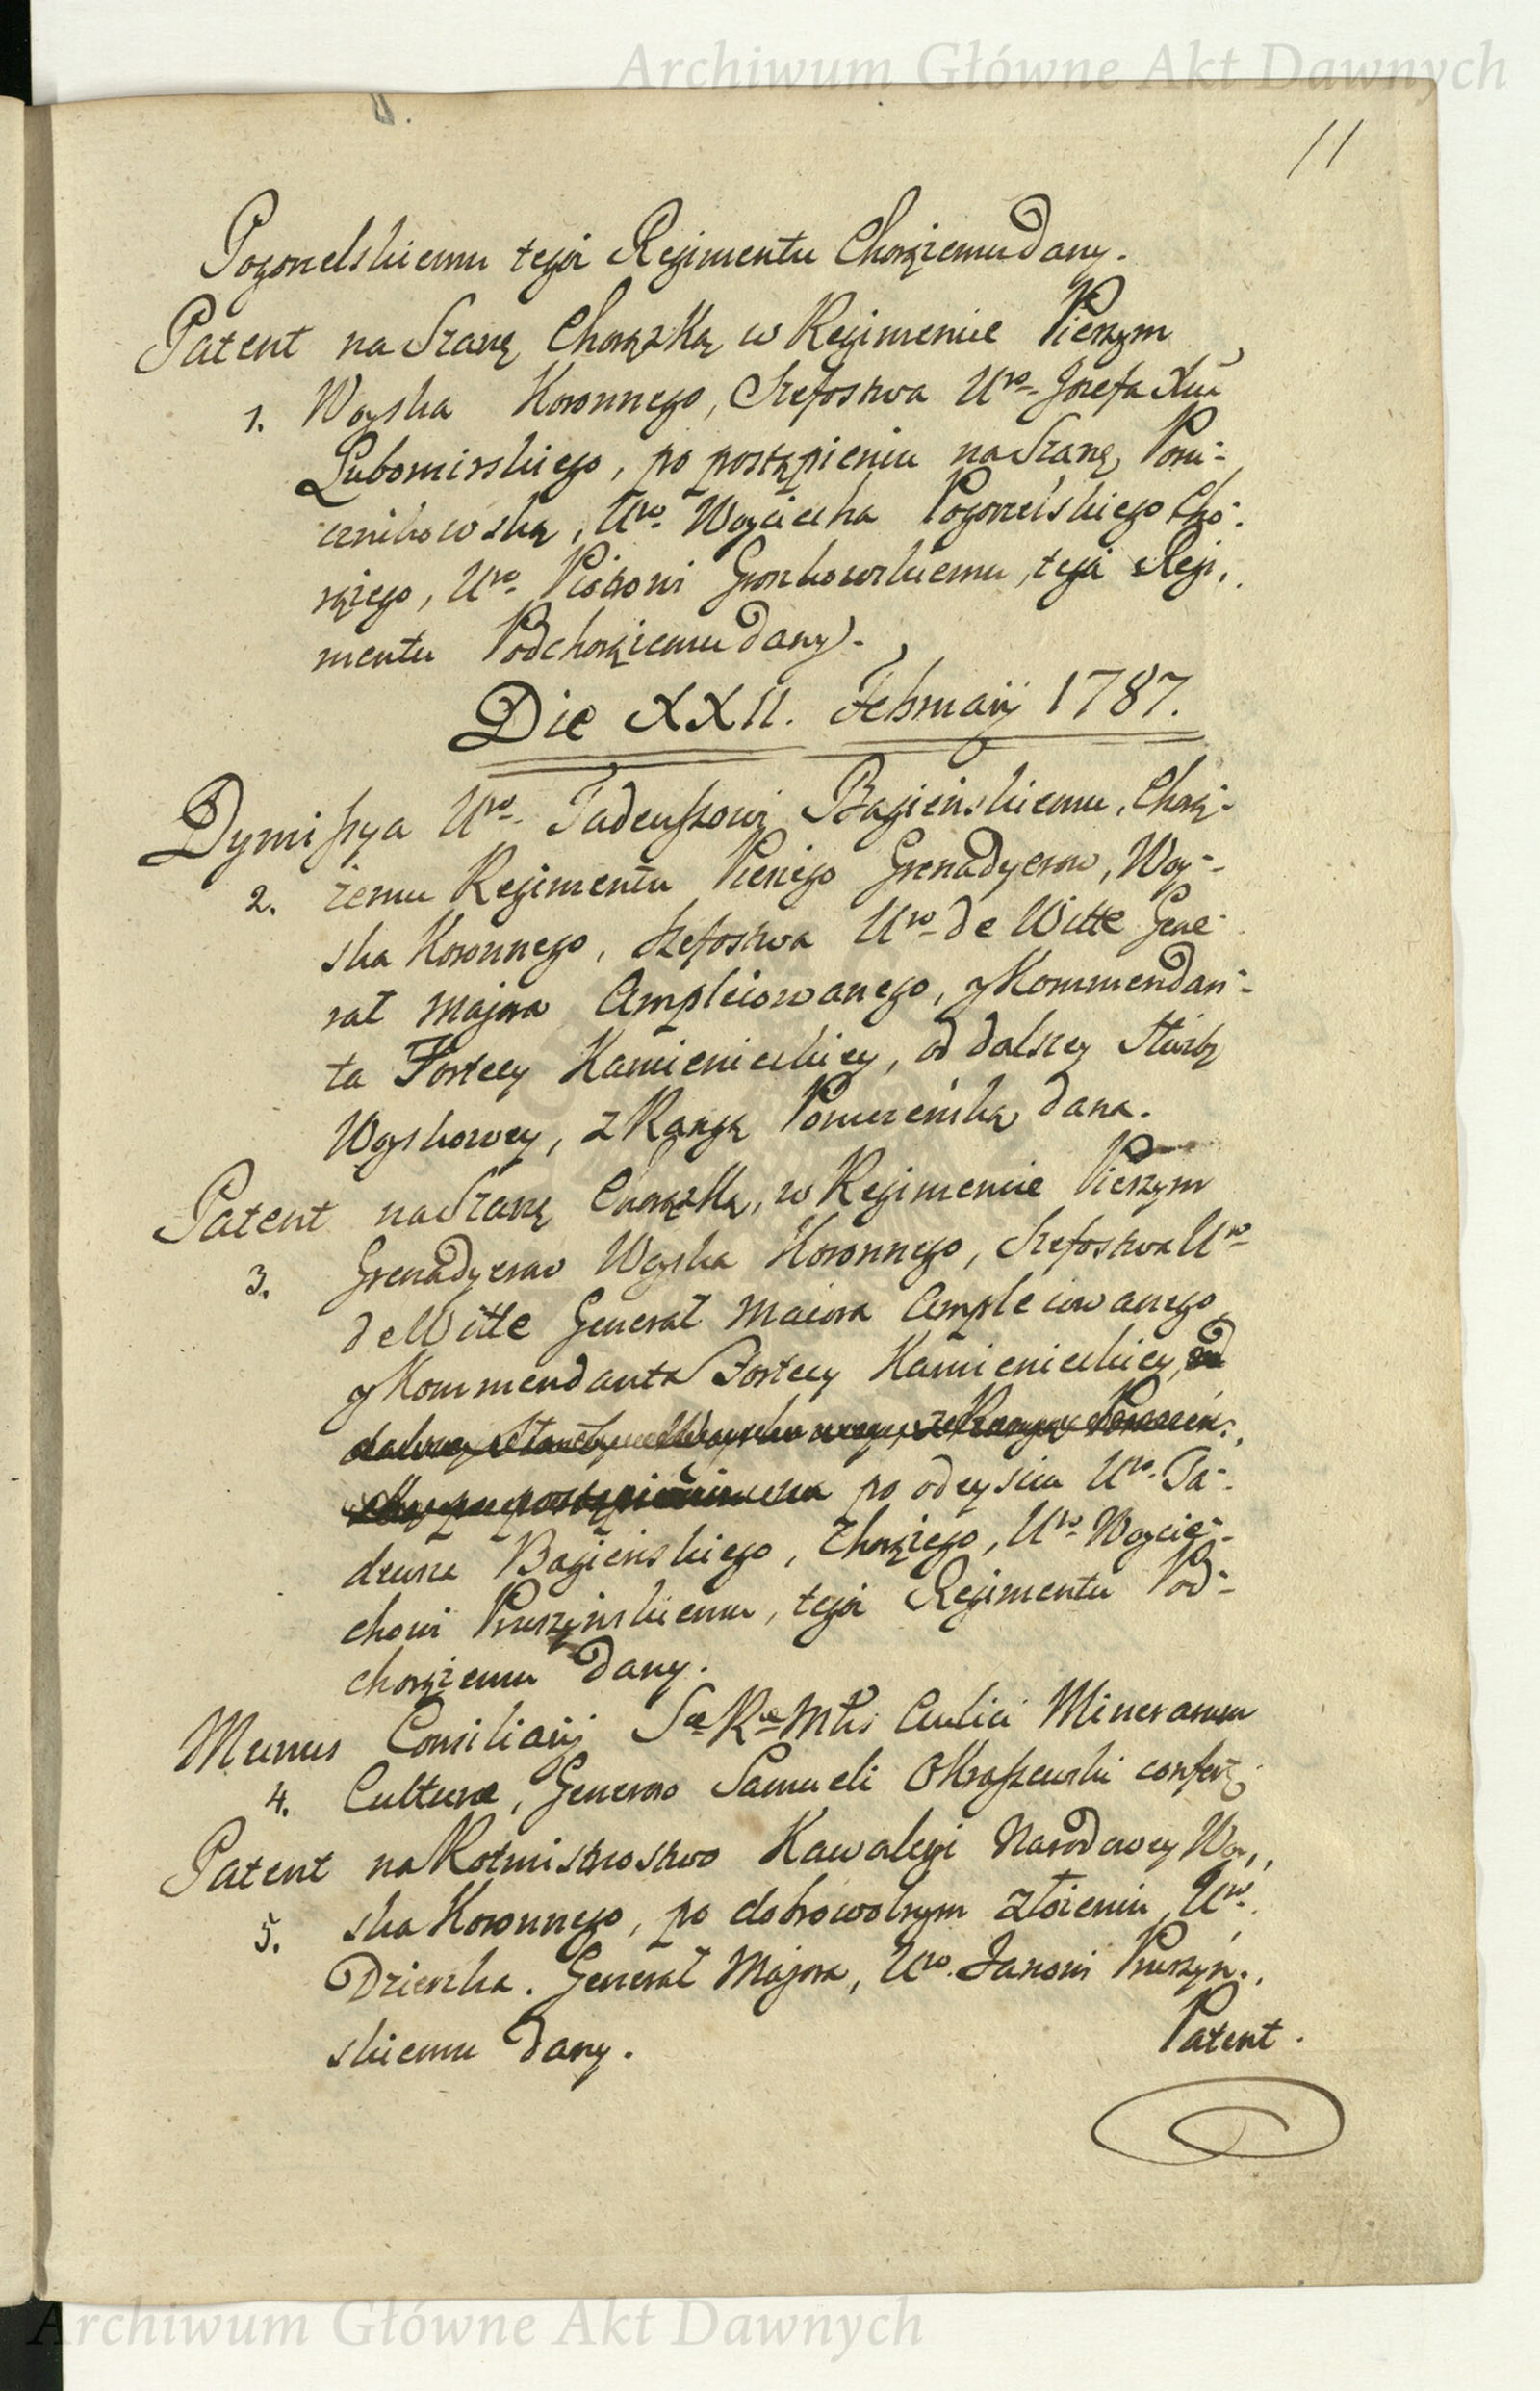 Archiwum Główne Akt Dawnych
11
Pogorzelskiemu tegoż Regimentu Chorążemu dany.
Patent na Szarżę Chorążką w Regimencie Pieszym
1. Woyska Koronnego, Szefostwa Uro Jozefa Xcia
Lubomirskiego, po postąpieniu na Szarżę Poru-
cznikowską, Uro Woyciecha Pogorzelskiego Cho-
rążego, Uro Piotrowi tegoż Regi-
mentu Podchorążemu dany.
Die XXII. Februarij 1787.
Dymissya Uro Tadeuszowi Bagieńskiemu, Chorą-
2. żemu Regimentu Pieszego Grenadyerow, Woy-
ska Koronnego, Szefostwa Uro de Witte Gene-
rał Majora Ampleiowanego, y Kommendan-
ta Fortecy Kamienieckiey, od dalszey Służby
Woyskowey, z Rangą Poruczeńską dana.
Patent na Szarżę Chorążką, w Regimencie Pieszym
3. Grenadyerow Woyska Koronnego, Szefostwa Uro
de Witte Generał Maiora Ampleiowanego
y Kommendanta Fortecy Kamienieckiey, od
dalszey Służby Woyskowey, z Rangą Poruczeń-
po odeysciu Uro Ta-
deusza Bagieńskiego, Chorążego, Uro Woycie-
chowi Pruszyńskiemu, tegoż Regimentu Pod-
chorążemu dany.
Munus Consiliarij Sae Rae Mtis Aulici Minerarum
4. Culturæ, Generoso Samueli Okraszewski confert:
Patent na Rotmistrzostwo Kawaleryi Narodowey Woy-
5. ska Koronnego, po dobrowolnym złożeniu Uro
Dzierzka. Generał Majora, Uro. Janowi Pruszyń-
skiemu dany.
Patent.
Archiwum Główne Akt Dawnych